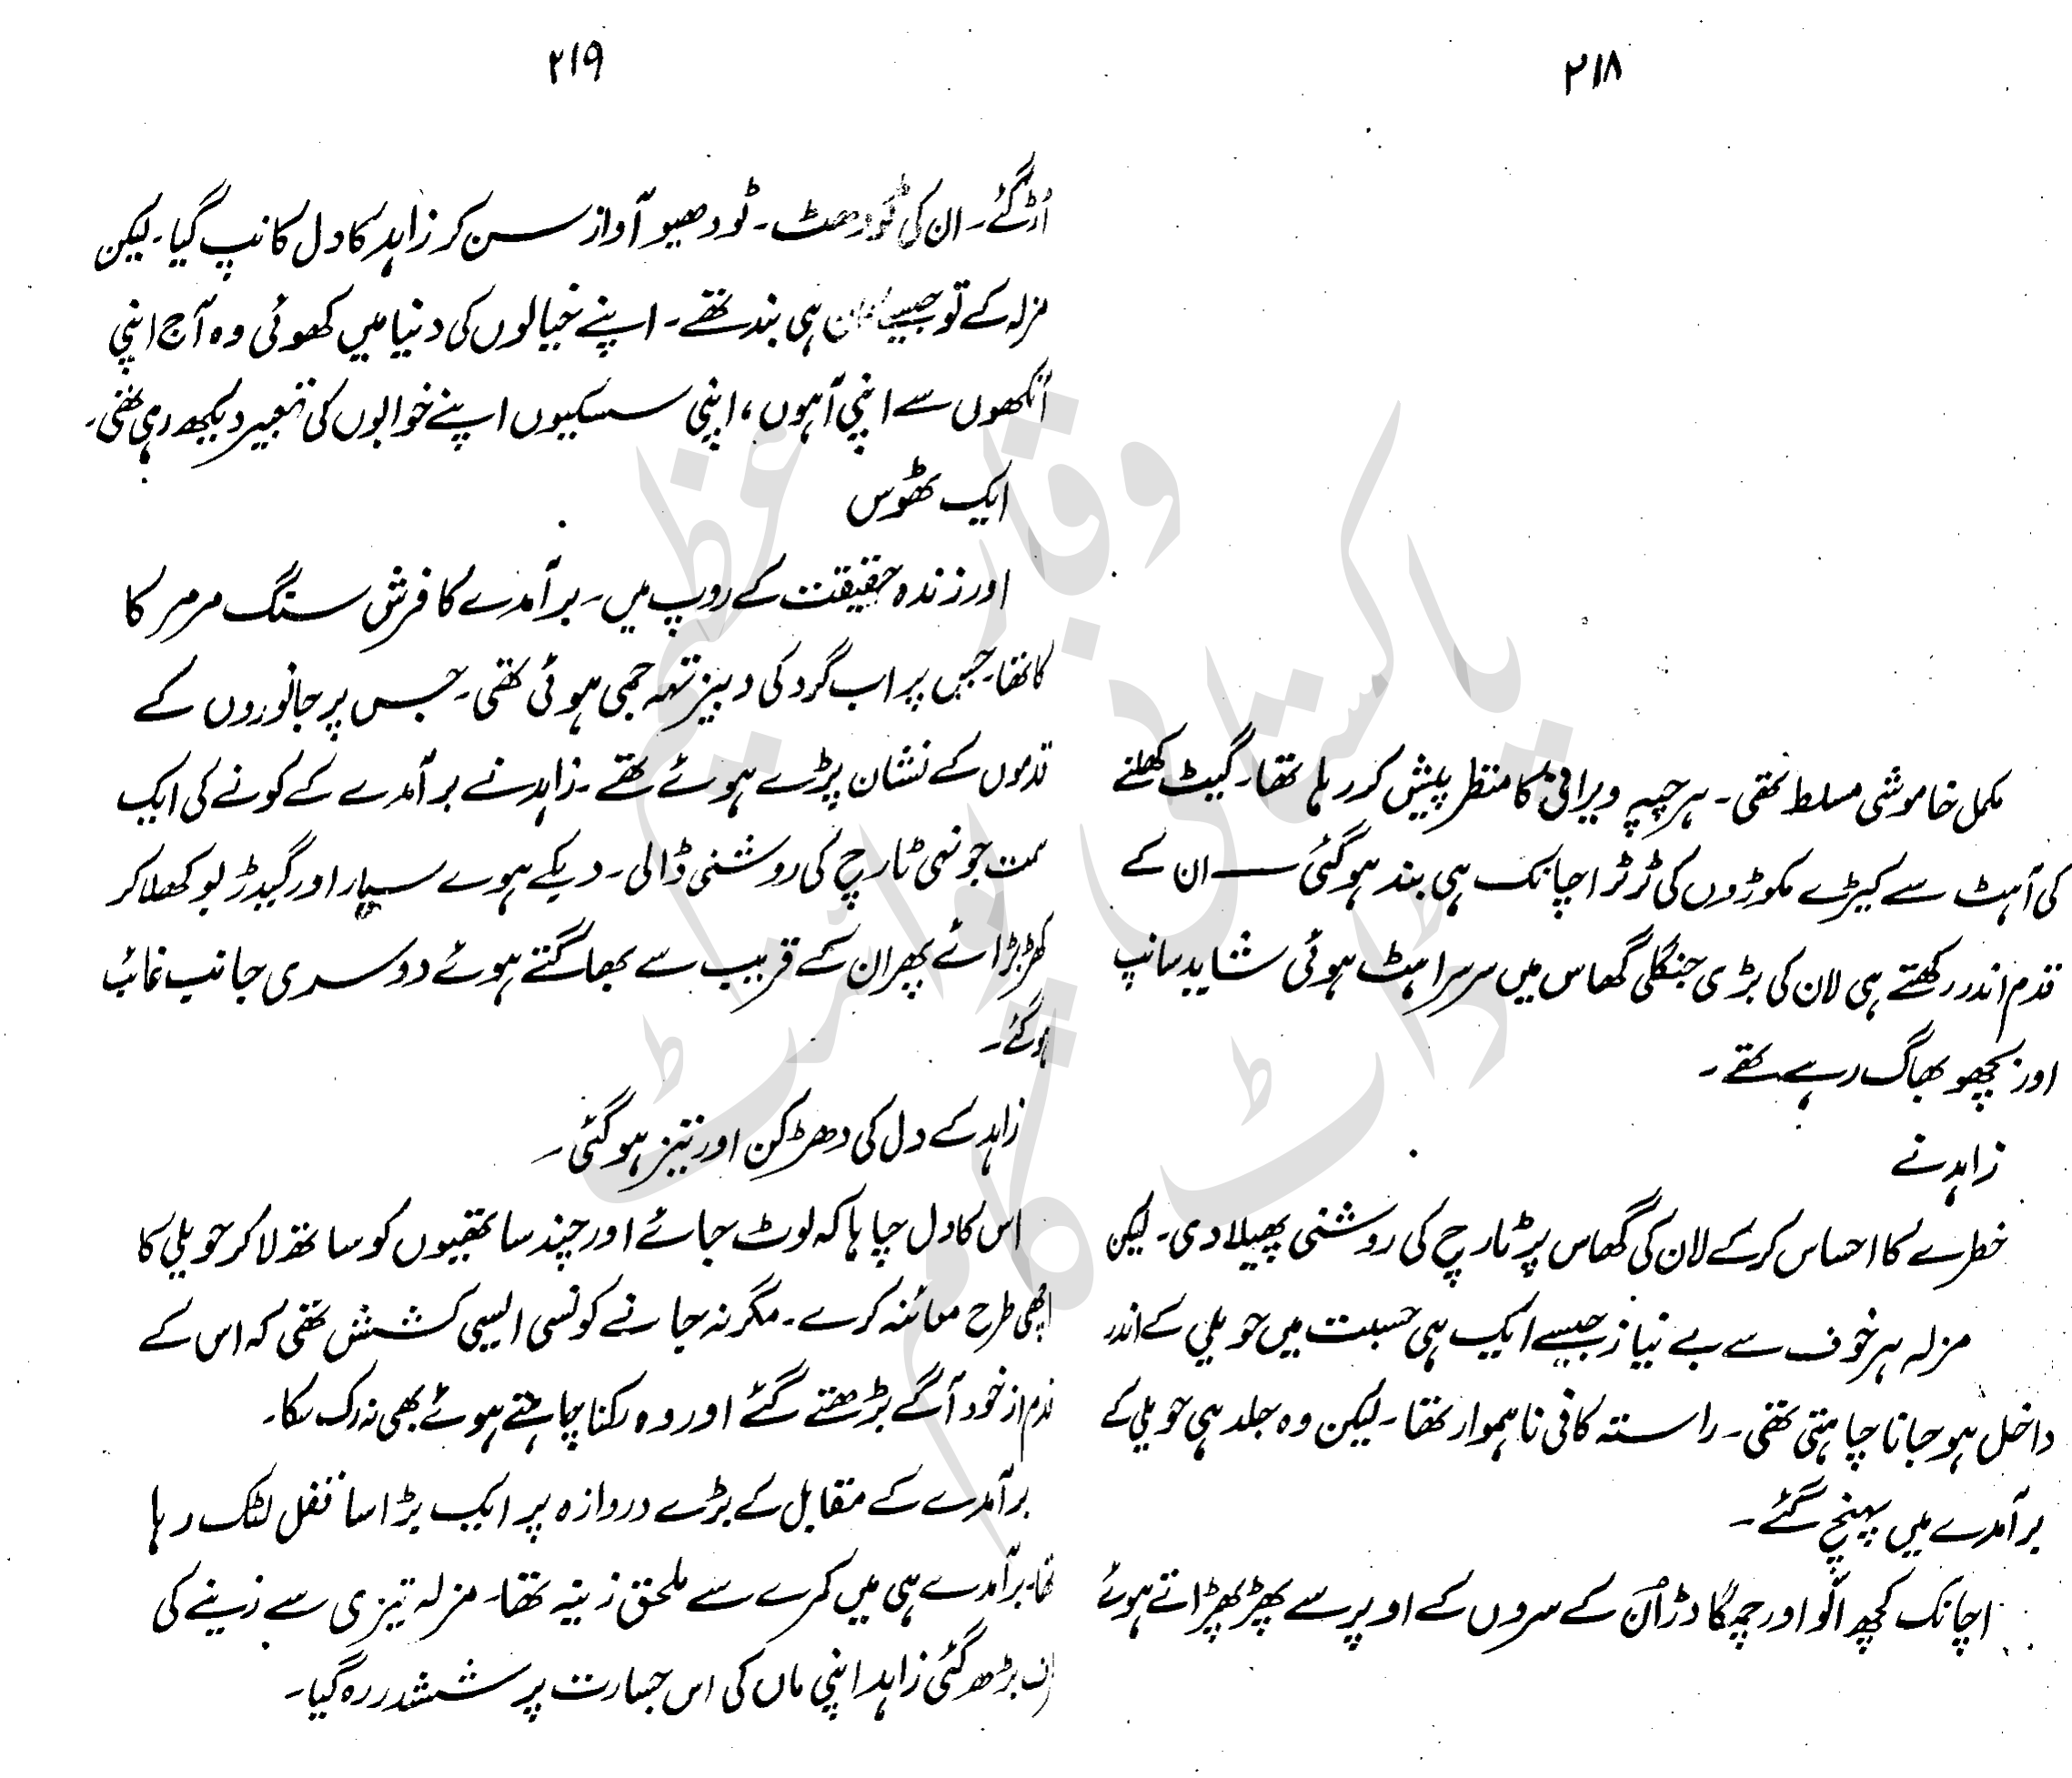 ۲۱۸
مکمل خاموشی مسلط تھی۔ ہر چپہ ویرانی کا منظر پیش کر رہا تھا۔ گیٹ کھلنے
کی آہٹ سے کیڑے مکوڑوں کی ٹرٹر اچانک ہی بند ہو گئی ــــ ان کے
قدم اندر رکھتے ہی لان کی بڑی جنگلی گھاس میں سرسراہٹ ہوئی شاید سانپ
اور بچھو بھاگ رہے تھے۔
زاہد نے
خطرے کا احساس کر کے لان کی گھاس پر ٹارچ کی روشنی پھیلا دی۔ لیکن
مزلہ ہر خوف سے بے نیاز جیسے ایک ہی جست میں حویلی کے اندر
داخل ہو جانا چاہتی تھی۔ راستہ کافی ناہموار تھا۔ لیکن وہ جلد ہی حویلی کے
برآمدے میں پہنچ گئے۔
اچانک کچھ الّو اور چمگادڑ اُن کے سروں کے اوپر سے پھڑپھڑاتے ہوئے
۲۱۹
اڑ گئے۔ ان کی آواز سن کر زاہد کا دل کانپ گیا۔ لیکن
مزلہ کے تو جیسے کان ہی بند تھے۔ اپنے خیالوں کی دنیا میں کھوئی وہ آج اپنی
آنکھوں سے اپنی آہوں، اپنی سسکیوں اپنے خوابوں کی تعبیر دیکھ رہی تھی۔
ایک ٹھوس
اور زندہ حقیقت کے روپ میں۔ برآمدے کا فرش سنگ مرمر کا
کا تھا۔ جس پر اب گرد کی دبیز تہہ جمی ہوئی تھی۔ جس پر جانوروں کے
قدموں کے نشان پڑے ہوئے تھے۔ زاہد نے برآمدے کے کونے کی ایک
سمت جونہی ٹارچ کی روشنی ڈالی۔ دبکے ہوے سیار اور گیدڑ بوکھلا کر
کھڑبڑائے پھر ان کے قریب سے بھاگتے ہوئے دوسری جانب غائب
ہو گئے۔
زاہد کے دل کی دھڑکن اور تیز ہو گئی۔
اس کا دل چاہا کہ لوٹ جائے اور چند ساتھیوں کو ساتھ لا کر حویلی کا
اچھی طرح معائنہ کرے۔ مگر نہ جانے کونسی ایسی کشش تھی کہ اس کے
قدم از خود آگے بڑھتے گئے اور وہ رکنا چاہتے ہوئے بھی نہ رک سکا۔
برآمدے کے مقابل کے بڑے دروازہ پر ایک بڑا سا قفل لٹک رہا
تھا۔ برآمدے ہی میں کمرے سے ملحق زینہ تھا۔ مزلہ تیزی سے زینے کی
طرف بڑھ گئی زاہد اپنی ماں کی اس جسارت پر ششدر رہ گیا۔
وقار عظیم
پاکستانی پوائنٹ
ڈاٹ کام